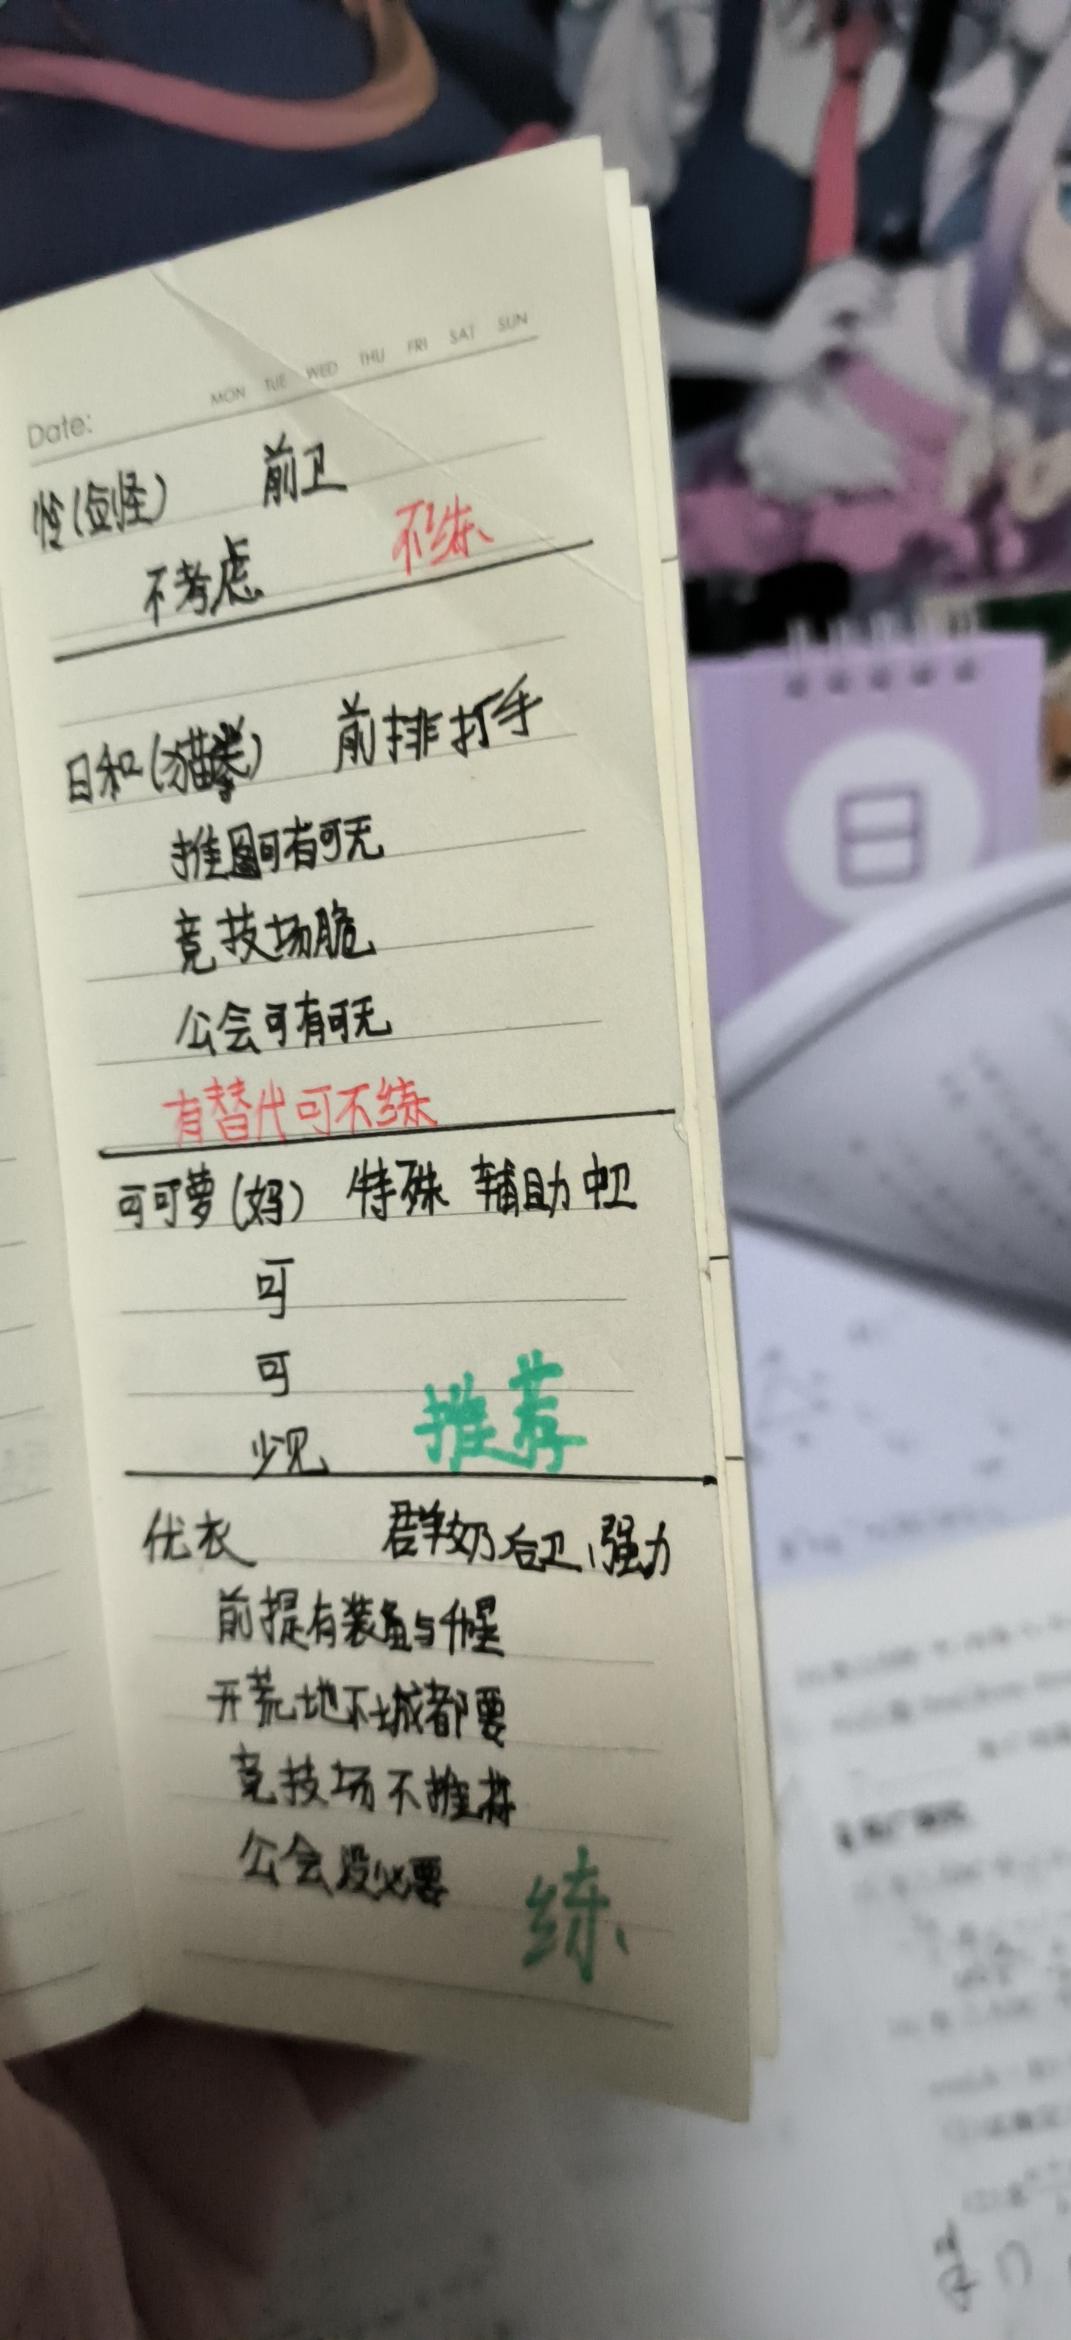 Date: MON TUE WED THU FRI SAT SUN
怜(剑怪) 前卫
不考虑 不练
日和(猫拳) 前排打手
推图可有可无
竞技场脆
公会可有可无
有替代可不练
可可萝(妈) 特殊 辅助 中卫
可
可
少见 推荐
优衣 群奶后卫,强力
前提有装备与升星
开荒地下城都要
竞技场不推荐
公会没必要
练
日